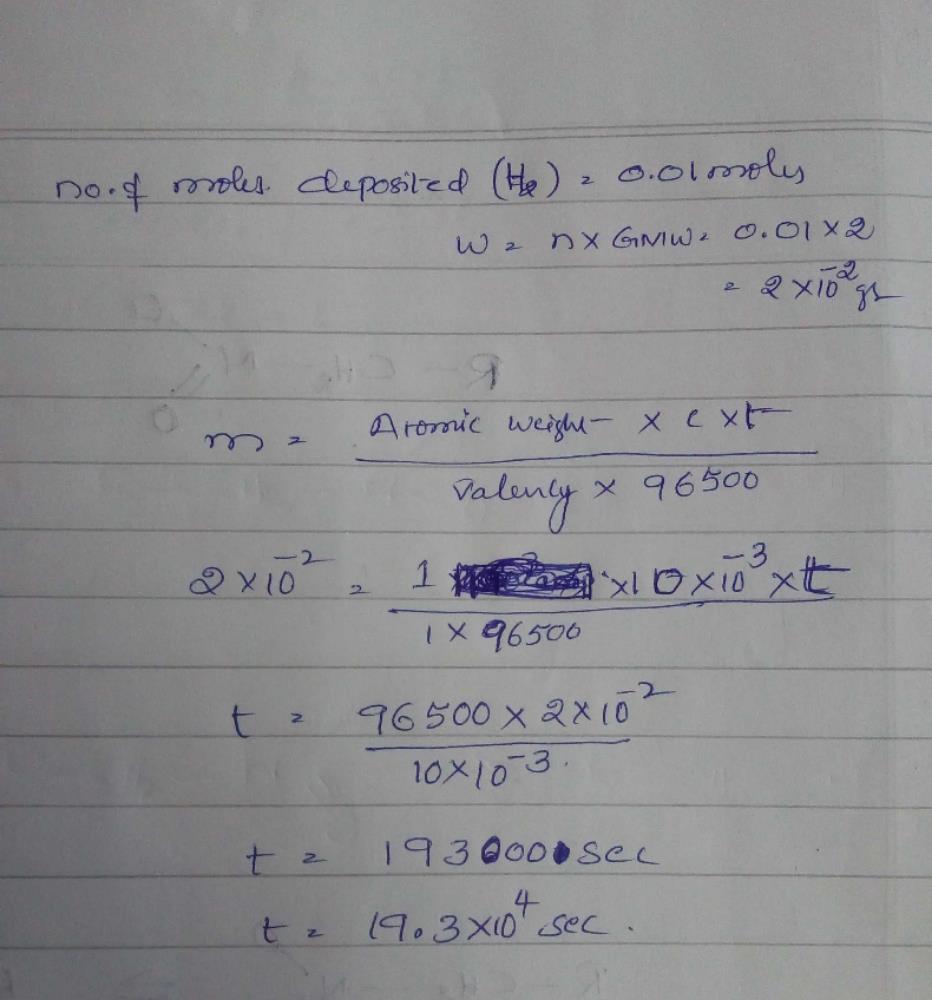 no. of moles deposited (H2) = 0.01 moles
W = n × GMW = 0.01 × 2
= 2 × 10^-2 gr
m = Atomic weight × c × t / Valency × 96500
2 × 10^-2 = 1 × 10 × 10^-3 × t / 1 × 96500
t = 96500 × 2 × 10^-2 / 10 × 10^-3
t = 193000 sec
t = 19.3 × 10^4 sec.